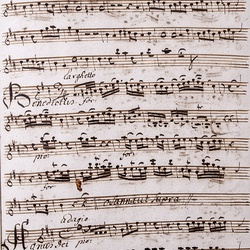 Larghetto
Benedictus. for.
pio. for.
for
Osanna ut Supra
Adagio
Agnus Dei pio.